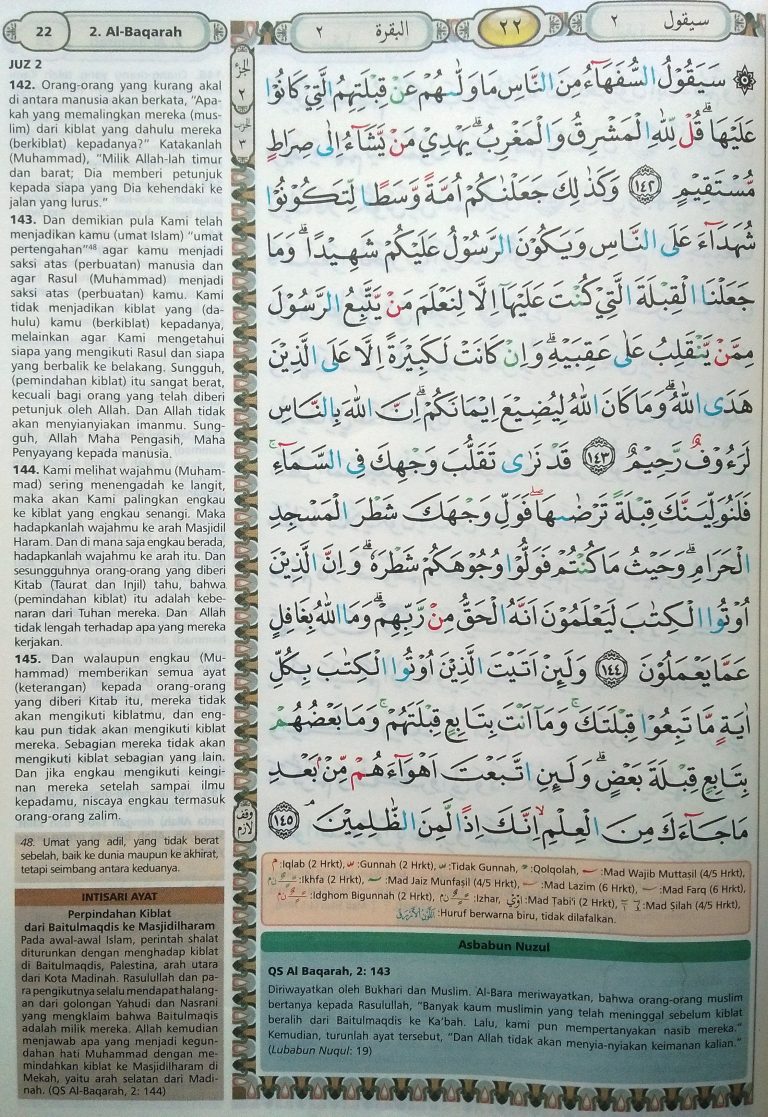 22
2. Al-Baqarah
البقرة ٢
٢٢
سيقول ٢
الجزء
٢
الحزب
٣
JUZ 2
142. Orang-orang yang kurang akal
di antara manusia akan berkata, “Apa-
kah yang memalingkan mereka (mus-
lim) dari kiblat yang dahulu mereka
(berkiblat) kepadanya?” Katakanlah
(Muhammad), “Milik Allah-lah timur
dan barat; Dia memberi petunjuk
kepada siapa yang Dia kehendaki ke
jalan yang lurus.”
143. Dan demikian pula Kami telah
menjadikan kamu (umat Islam) “umat
pertengahan”48 agar kamu menjadi
saksi atas (perbuatan) manusia dan
agar Rasul (Muhammad) menjadi
saksi atas (perbuatan) kamu. Kami
tidak menjadikan kiblat yang (da-
hulu) kamu (berkiblat) kepadanya,
melainkan agar Kami mengetahui
siapa yang mengikuti Rasul dan siapa
yang berbalik ke belakang. Sungguh,
(pemindahan kiblat) itu sangat berat,
kecuali bagi orang yang telah diberi
petunjuk oleh Allah. Dan Allah tidak
akan menyianyiakan imanmu. Sung-
guh, Allah Maha Pengasih, Maha
Penyayang kepada manusia.
144. Kami melihat wajahmu (Muham-
mad) sering menengadah ke langit,
maka akan Kami palingkan engkau
ke kiblat yang engkau senangi. Maka
hadapkanlah wajahmu ke arah Masjidil
Haram. Dan di mana saja engkau berada,
hadapkanlah wajahmu ke arah itu. Dan
sesungguhnya orang-orang yang diberi
Kitab (Taurat dan Injil) tahu, bahwa
(pemindahan kiblat) itu adalah kebe-
naran dari Tuhan mereka. Dan Allah
tidak lengah terhadap apa yang mereka
kerjakan.
145. Dan walaupun engkau (Mu-
hammad) memberikan semua ayat
(keterangan) kepada orang-orang
yang diberi Kitab itu, mereka tidak
akan mengikuti kiblatmu, dan eng-
kau pun tidak akan mengikuti kiblat
mereka. Sebagian mereka tidak akan
mengikuti kiblat sebagian yang lain.
Dan jika engkau mengikuti keingi-
nan mereka setelah sampai ilmu
kepadamu, niscaya engkau termasuk
orang-orang zalim.
48. Umat yang adil, yang tidak berat
sebelah, baik ke dunia maupun ke akhirat,
tetapi seimbang antara keduanya.
INTISARI AYAT
Perpindahan Kiblat
dari Baitulmaqdis ke Masjidilharam
Pada awal-awal Islam, perintah shalat
diturunkan dengan menghadap kiblat
di Baitulmaqdis, Palestina, arah utara
dari Kota Madinah. Rasulullah dan pa-
ra pengikutnya selalu mendapat halang-
an dari golongan Yahudi dan Nasrani
yang mengklaim bahwa Baitulmaqis
adalah milik mereka. Allah kemudian
menjawab apa yang menjadi kegun-
dahan hati Muhammad dengan me-
mindahkan kiblat ke Masjidilharam di
Mekah, yaitu arah selatan dari Madi-
nah. (QS Al-Baqarah, 2: 144)
سَيَقُوْلُ السُّفَهَاۤءُ مِنَ النَّاسِ مَا وَلّٰىهُمْ عَنْ قِبْلَتِهِمُ الَّتِيْ كَانُوْا
عَلَيْهَاۗ قُلْ لِّلّٰهِ الْمَشْرِقُ وَالْمَغْرِبُۗ يَهْدِيْ مَنْ يَّشَاۤءُ اِلٰى صِرَاطٍ
مُّسْتَقِيْمٍ ١٤٢ وَكَذٰلِكَ جَعَلْنٰكُمْ اُمَّةً وَّسَطًا لِّتَكُوْنُوْا
شُهَدَاۤءَ عَلَى النَّاسِ وَيَكُوْنَ الرَّسُوْلُ عَلَيْكُمْ شَهِيْدًاۗ وَمَا
جَعَلْنَا الْقِبْلَةَ الَّتِيْ كُنْتَ عَلَيْهَآ اِلَّا لِنَعْلَمَ مَنْ يَّتَّبِعُ الرَّسُوْلَ
مِمَّنْ يَّنْقَلِبُ عَلٰى عَقِبَيْهِۗ وَاِنْ كَانَتْ لَكَبِيْرَةً اِلَّا عَلَى الَّذِيْنَ
هَدَى اللّٰهُۗ وَمَا كَانَ اللّٰهُ لِيُضِيْعَ اِيْمَانَكُمْۗ اِنَّ اللّٰهَ بِالنَّاسِ
لَرَءُوْفٌ رَّحِيْمٌ ١٤٣ قَدْ نَرٰى تَقَلُّبَ وَجْهِكَ فِى السَّمَاۤءِۚ
فَلَنُوَلِّيَنَّكَ قِبْلَةً تَرْضٰىهَاۖ فَوَلِّ وَجْهَكَ شَطْرَ الْمَسْجِدِ
الْحَرَامِۗ وَحَيْثُ مَا كُنْتُمْ فَوَلُّوْا وُجُوْهَكُمْ شَطْرَهٗۗ وَاِنَّ الَّذِيْنَ
اُوْتُوا الْكِتٰبَ لَيَعْلَمُوْنَ اَنَّهُ الْحَقُّ مِنْ رَّبِّهِمْۗ وَمَا اللّٰهُ بِغَافِلٍ
عَمَّا يَعْمَلُوْنَ ١٤٤ وَلَىِٕنْ اَتَيْتَ الَّذِيْنَ اُوْتُوا الْكِتٰبَ بِكُلِّ
اٰيَةٍ مَّا تَبِعُوْا قِبْلَتَكَۚ وَمَآ اَنْتَ بِتَابِعٍ قِبْلَتَهُمْۚ وَمَا بَعْضُهُمْ
بِتَابِعٍ قِبْلَةَ بَعْضٍۗ وَلَىِٕنِ اتَّبَعْتَ اَهْوَاۤءَهُمْ مِّنْۢ بَعْدِ
مَا جَاۤءَكَ مِنَ الْعِلْمِۙ اِنَّكَ اِذًا لَّمِنَ الظّٰلِمِيْنَۘ ١٤٥
وقف
لازم
:Iqlab (2 Hrkt), :Gunnah (2 Hrkt), :Tidak Gunnah, :Qolqolah, :Mad Wajib Muttaṣil (4/5 Hrkt),
:Ikhfa (2 Hrkt), :Mad Jaiz Munfaṣil (4/5 Hrkt), :Mad Lazim (6 Hrkt), :Mad Farq (6 Hrkt),
:Idghom Bigunnah (2 Hrkt), :Izhar, :Mad Ṭabi'i (2 Hrkt), :Mad Ṣilah (4/5 Hrkt),
:Huruf berwarna biru, tidak dilafalkan.
Asbabun Nuzul
QS Al Baqarah, 2: 143
Diriwayatkan oleh Bukhari dan Muslim. Al-Bara meriwayatkan, bahwa orang-orang muslim
bertanya kepada Rasulullah, “Banyak kaum muslimin yang telah meninggal sebelum kiblat
beralih dari Baitulmaqdis ke Ka'bah. Lalu, kami pun mempertanyakan nasib mereka.”
Kemudian, turunlah ayat tersebut, “Dan Allah tidak akan menyia-nyiakan keimanan kalian.”
(Lubabun Nuqul: 19)